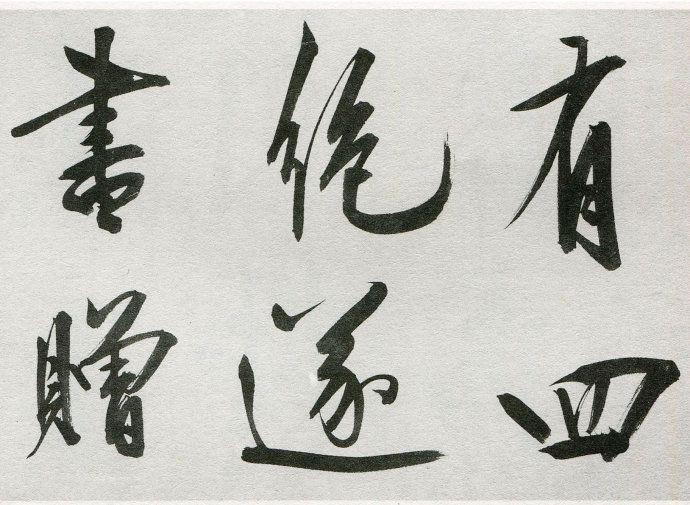 有四
絶遂
書贈